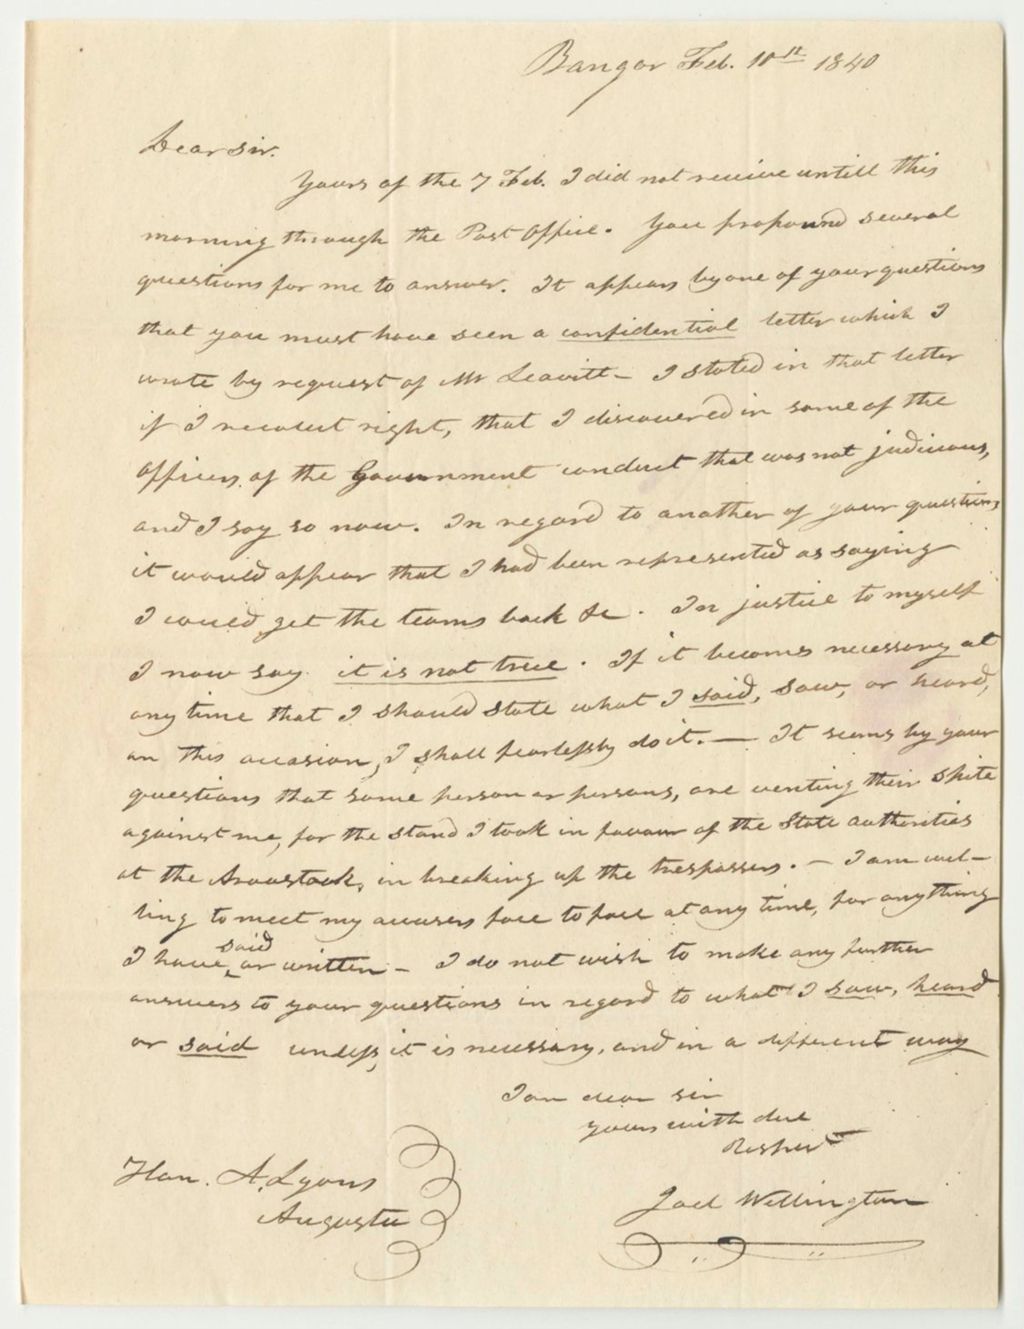 Bangor Feb. 10th 1840
Dear Sir.
Yours of the 7 Feb. I did not receive untill this
morning through the Post Office. You propound several
questions for me to answer. It appears by one of your questions
that you must have seen a confidential letter which I
wrote by request of Mr Leavitt – I stated in that letter
if I recolect right, that I discovered in some of the
officers of the Government conduct that was not judicious,
and I say so now. In regard to another of your questions
it would appear that I had been represented as saying
I could get the teams back &c. In justice to myself
I now say it is not true. If it becomes necessary at
any time that I should state what I said, saw, or heard,
on this occasion, I shall fearlessly do it. — It seems by your
questions that some person or persons, are venting their spite
against me, for the stand I took in favour of the State authorities
at the Aroostook, in breaking up the trespassers. – I am wil-
ling to meet my accusers face to face at any time, for anything
I have said or written – I do not wish to make any further
answers to your questions in regard to what I saw, heard
or said unless, it is necessary, and in a different way
I am dear sir
yours with due
Respect
Joel Wellington
Hon. A. Lyons
Augusta